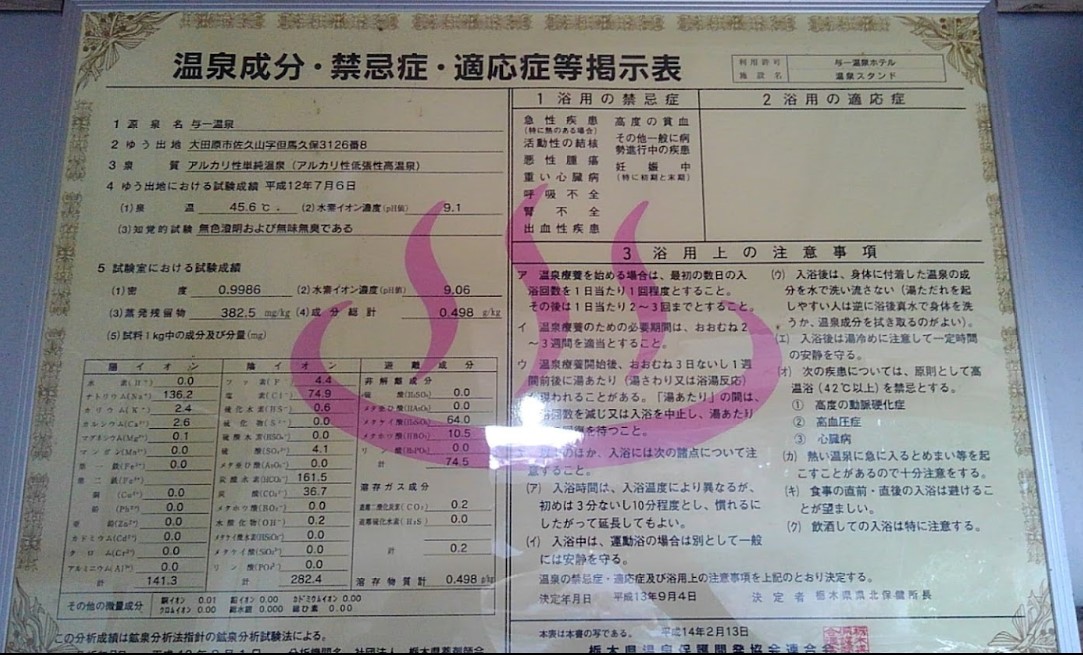 温泉成分・禁忌症・適応症等掲示表
利用許可 与一温泉ホテル
施設名 温泉スタンド
1 源泉名 与一温泉
2 ゆう出地 大田原市佐久山字但馬久保3126番8
3 泉質 アルカリ性単純温泉（アルカリ性低張性高温泉）
4 ゆう出地における試験成績 平成12年7月6日
(1)泉温 45.6℃. (2)水素イオン濃度(pH値) 9.1
(3)知覚的試験 無色澄明および無味無臭である
5 試験室における試験成績
(1)密度 0.9986 (2)水素イオン濃度(pH値) 9.06
(3)蒸発残留物 382.5 mg/kg (4)成分総計 0.498 g/kg
(5)試料1kg中の成分及び分量(mg)
陽イオン
水素(H⁺) 0.0
ナトリウム(Na⁺) 136.2
カリウム(K⁺) 2.4
カルシウム(Ca²⁺) 2.6
マグネシウム(Mg²⁺) 0.1
マンガン(Mn²⁺) 0.0
第一鉄(Fe²⁺) 0.0
第二鉄(Fe³⁺)
銅(Cu²⁺) 0.0
鉛(Pb²⁺) 0.0
亜鉛(Zn²⁺) 0.0
カドミウム(Cd²⁺) 0.0
クロム(Cr³⁺) 0.0
アルミニウム(Al³⁺) 0.0
計 141.3
陰イオン
フッ素(F⁻) 4.4
塩素(Cl⁻) 74.9
硫化水素(HS⁻) 0.6
硫化物(S²⁻) 0.0
硫酸水素(HSO₄⁻) 0.0
硫酸(SO₄²⁻) 4.1
メタ亜ひ酸(AsO₂⁻) 0.0
炭酸水素(HCO₃⁻) 161.5
炭酸(CO₃²⁻) 36.7
メタホウ酸(BO₂⁻) 0.0
水酸化物(OH⁻) 0.2
メタケイ酸水素(HSiO₃⁻) 0.0
メタケイ酸(SiO₃²⁻) 0.0
リン酸(PO₄³⁻) 0.0
計 282.4
遊離成分
非解離成分
硫酸(H₂SO₄) 0.0
メタ亜ひ酸(HAsO₂) 0.0
メタケイ酸(H₂SiO₃) 64.0
メタホウ酸(HBO₂) 10.5
リン酸(H₃PO₄) 0.0
計 74.5
溶存ガス成分
遊離二酸化炭素(CO₂) 0.2
遊離硫化水素(H₂S) 0.0
計 0.2
溶存物質計 0.498 g/kg
その他の微量成分 銅イオン 0.01 鉛イオン 0.00 カドミウムイオン 0.00
クロムイオン 0.00 総水銀 0.000 総ひ素 0.00
この分析成績は鉱泉分析法指針の鉱泉分析試験法による。
分析機関名 社団法人 栃木県薬剤師会
1 浴用の禁忌症
急性疾患
(特に熱のある場合)
活動性の結核
悪性腫瘍
重い心臓病
呼吸不全
腎不全
出血性疾患
高度の貧血
その他一般に病
勢進行中の疾患
妊娠中
(特に初期と末期)
2 浴用の適応症
3 浴用上の注意事項
ア 温泉療養を始める場合は、最初の数日の入
浴回数を1日当たり1回程度とすること。
その後は1日当たり2～3回までとすること。
イ 温泉療養のための必要期間は、おおむね2
～3週間を適当とすること。
ウ 温泉療養開始後、おおむね3日ないし1週
間前後に湯あたり（湯さわり又は浴湯反応）
が現われることがある。「湯あたり」の間は、
浴回数を減じ又は入浴を中止し、湯あたり
を待つこと。
のほか、入浴には次の諸点について注
意すること。
(ア) 入浴時間は、入浴温度により異なるが、
初めは3分ないし10分程度とし、慣れるに
したがって延長してもよい。
(イ) 入浴中は、運動浴の場合は別として一般
には安静を守る。
(ウ) 入浴後は、身体に付着した温泉の成
分を水で洗い流さない（湯ただれを起
しやすい人は逆に浴後真水で身体を洗
うか、温泉成分を拭き取るのがよい）。
(エ) 入浴後は湯冷めに注意して一定時間
の安静を守る。
(オ) 次の疾患については、原則として高
温浴（42℃以上）を禁忌とする。
① 高度の動脈硬化症
② 高血圧症
③ 心臓病
(カ) 熱い温泉に急に入るとめまい等を起
こすことがあるので十分注意をする。
(キ) 食事の直前・直後の入浴は避けるこ
とが望ましい。
(ク) 飲酒しての入浴は特に注意する。
温泉の禁忌症・適応症及び浴用上の注意事項を上記のとおり決定する。
決定年月日 平成13年9月4日 決定者 栃木県県北保健所長
本表は本書の写である。 平成14年2月13日
栃木県温泉保護開発協会連合会